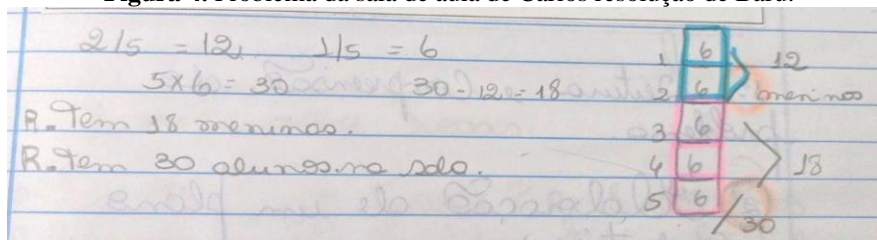 Figura 4. Problema da sala de aula de Carlos resolução de Duru.
2/5 = 12, 1/5 = 6
5x6 = 30 30 - 12 = 18
R. Tem 18 meninas.
R. Tem 30 alunos na sala.
1 6
2 6
12 meninos
3 6
4 6
5 6
18
30